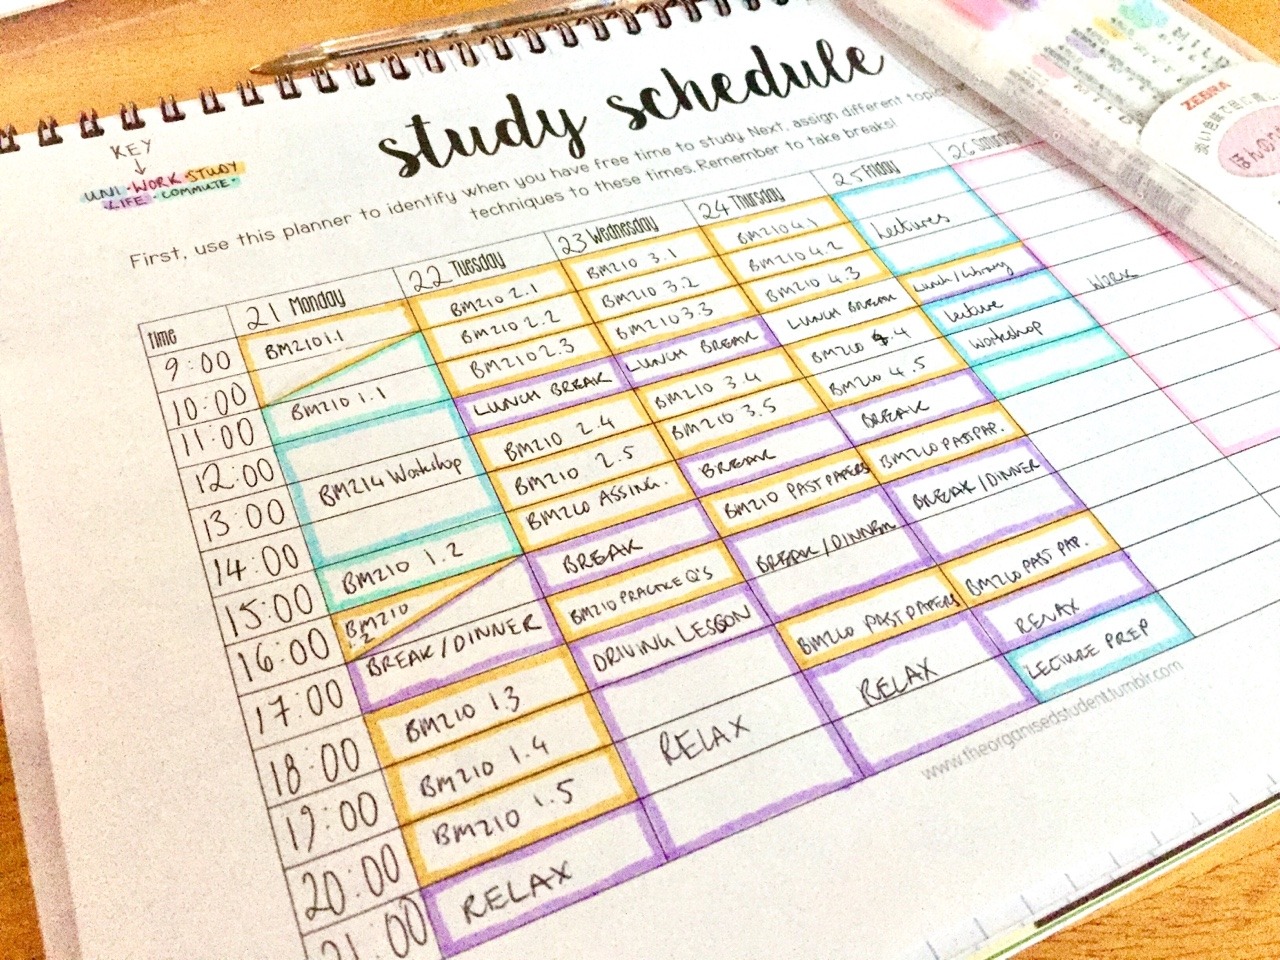 study schedule
First, use this planner to identify when you have free time to study. Next, assign different
techniques to these times. Remember to take breaks!
KEY
UNI · WORK · STUDY
LIFE · COMMUTE
time
21 Monday
22 Tuesday
23 Wednesday
24 Thursday
25 Friday
26
9:00
10:00
11:00
12:00
13:00
14:00
15:00
16:00
17:00
18:00
19:00
20:00
21:00
BM210 1.1
BM210 1.1
BM214 Workshop
BM210 1.2
BM210
BREAK/DINNER
BM210 1.3
BM210 1.4
BM210 1.5
RELAX
BM210 2.1
BM210 2.2
BM210 2.3
LUNCH BREAK
BM210 2.4
BM210 2.5
BM210 ASSING.
BREAK
BM210 PRACTICE Q'S
DRIVING LESSON
RELAX
BM210 3.1
BM210 3.2
BM210 3.3
LUNCH BREAK
BM210 3.4
BM210 3.5
BREAK
BM210 PAST PAPERS
BREAK/DINNER
BM210 PAST PAPERS
RELAX
BM210 4.1
BM210 4.2
BM210 4.3
LUNCH BREAK
BM210 4.4
BM210 4.5
BREAK
BM210 PAST PAP.
BREAK/DINNER
BM210 PAST PAP.
RELAX
LECTURE PREP
Lectures
Lunch/Library
Lecture
Workshop
Work
www.theorganisedstudent.tumblr.com
ZEBRA